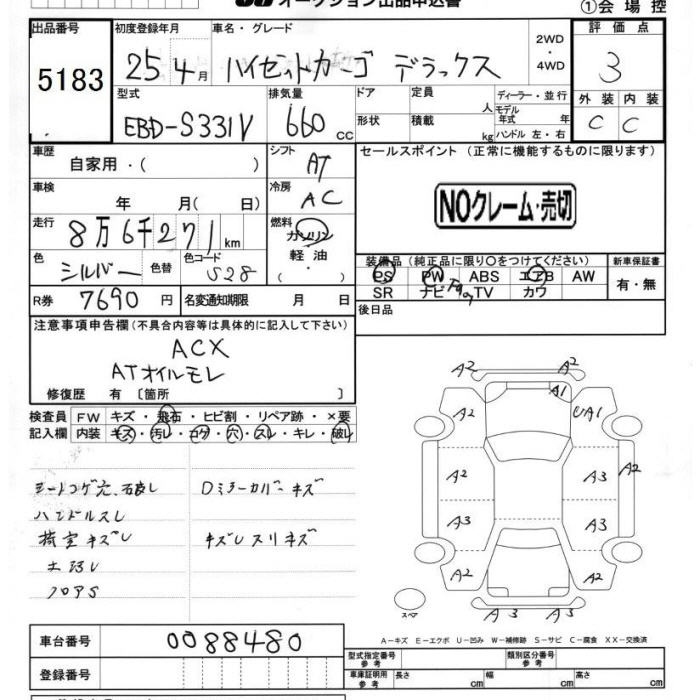 オークション出品申込書
①会場控
出品番号 初度登録年月 車名・グレード 評価点
5183 25 4月 ハイゼットカーゴ デラックス 2WD・4WD 3
型式 排気量 ドア 定員 人 ディーラー・並行 外装 内装
EBD-S331V 660 cc 形状 積載 kg モデル年式 年 ハンドル 左・右 C C
車歴 自家用・( ) シフト AT セールスポイント (正常に機能するものに限ります)
車検 年 月( 日) 冷房 AC NOクレーム・売切
走行 8万6千271km 燃料 ガソリン 軽油 ・( )
色 シルバー 色替 色コード S28
装備品 (純正品に限り○をつけてください) 新車保証書
PS PW ABS エアB AW 有・無
SR ナビ TV カワ
R券 7690円 名変通知期限 月 日 後日品
注意事項申告欄(不具合内容等は具体的に記入して下さい)
ACX
ATオイルモレ
修復歴 有 〔箇所 〕
検査員 FW キズ・飛石・ヒビ割・リペア跡・×要
記入欄 内装 キズ・汚レ・コゲ・穴・スレ・キレ・破レ
シートコゲ穴、破レ Dミラーカバーキズ
ハンドルスレ
荷室キズ キズ スリキズ
フロアS
A2 A2
A1
A2 UA1
A2 A3 A2
A3 A3
A2 A2
A3 A3
スペア
A-キズ E-エクボ U-凹み W-補修跡 S-サビ C-腐食 XX-交換済
車台番号 0088480
登録番号
型式指定番号 参考 類別区分番号 参考
車庫証明用 参考 長さ cm 幅 cm 高さ cm